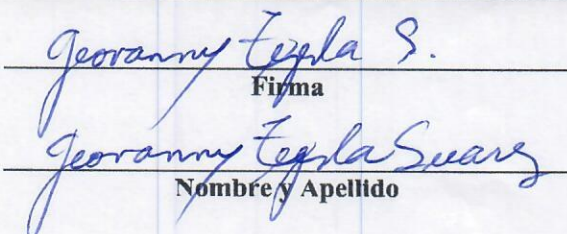 Geovanny Tegla S.
Firma
Geovanny Tegla Suarez
Nombre y Apellido